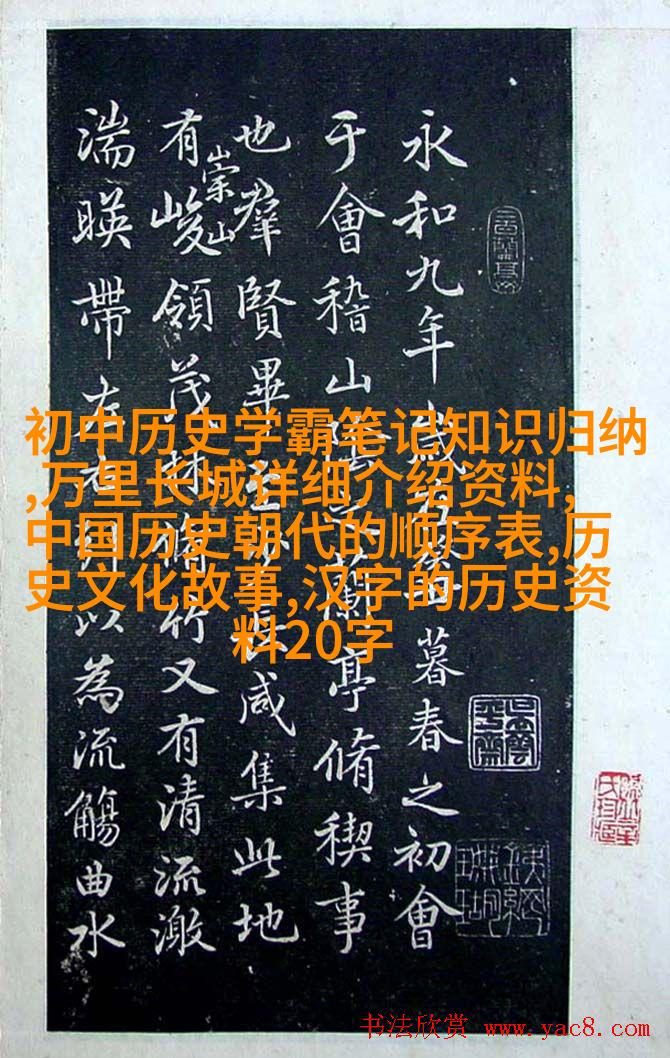 永和九年歲暮春之初會
于會稽山陰之蘭亭脩稧事
也羣賢畢至少長咸集此地
有崇山峻領茂林脩竹又有清流激
湍暎帶左右引以為流觴曲水
初中历史学霸笔记知识归纳
,万里长城详细介绍资料,
中国历史朝代的顺序表,历
史文化故事,汉字的历史资
料20字
书法欣赏 www.yac8.com